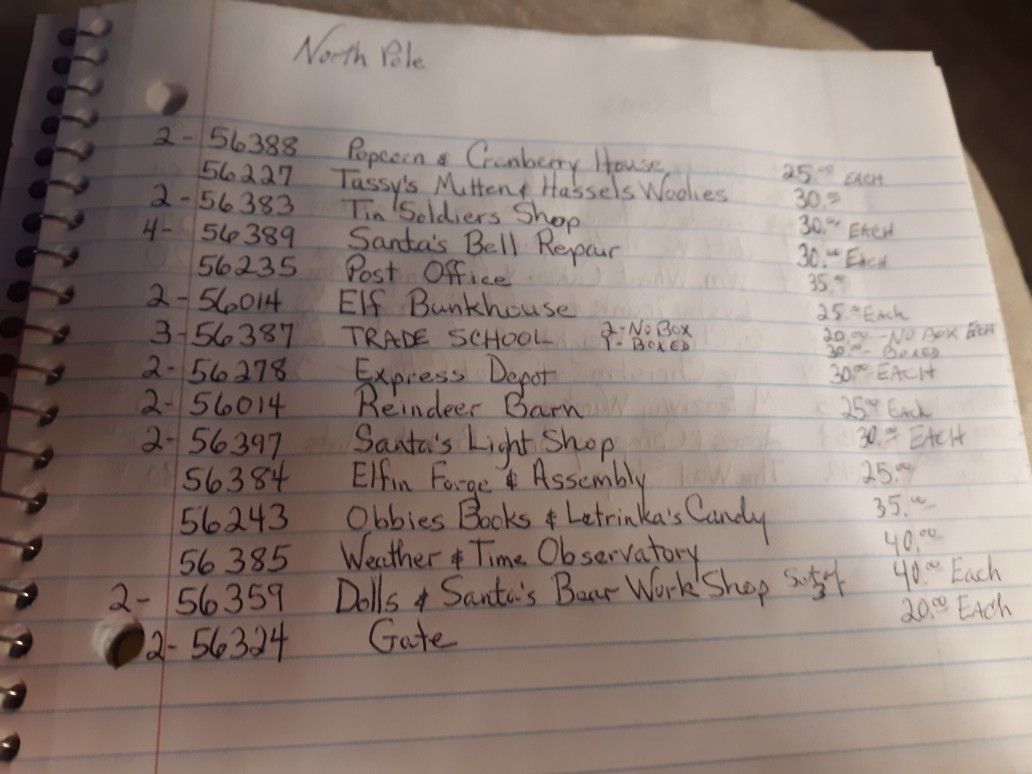 North Pole
2- 56388 Popcorn & Cranberry House 25.00 EACH
56227 Tassy's Mitten & Hassels Woolies 30.00
2- 56383 Tin Soldiers Shop 30.00 EACH
4- 56389 Santa's Bell Repair 30.00 Each
56235 Post Office 35.00
2- 56014 Elf Bunkhouse 25.00 Each
3- 56387 TRADE SCHOOL 2- No Box 20.00 - No Box Each
1- BOXED 30.00 - BOXED
2- 56278 Express Depot 30.00 EACH
2- 56014 Reindeer Barn 25.00 Each
2- 56397 Santa's Light Shop 30.00 EACH
56384 Elfin Forge & Assembly 25.00
56243 Obbies Books & Letrinka's Candy 35.00
56385 Weather & Time Observatory 40.00
2- 56359 Dolls & Santa's Bear Work Shop Set of 3 40.00 Each
2- 56324 Gate 20.00 Each